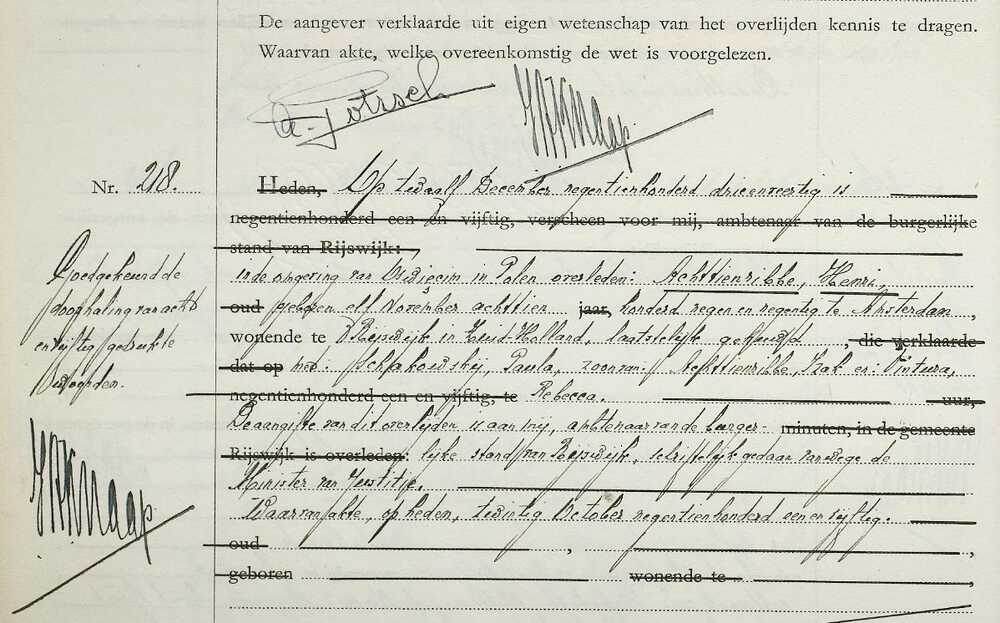 De aangever verklaarde uit eigen wetenschap van het overlijden kennis te dragen.
Waarvan akte, welke overeenkomstig de wet is voorgelezen.
Nr. 218. Heden, Op twaalf December negentienhonderd drieenveertig is
negentienhonderd een en vijftig, verscheen voor mij, ambtenaar van de burgerlijke
stand van Rijswijk:
in de omgeving van Oswiecim in Polen overleden: Achttienribbe, Henri,
oud geboren elf November achttien jaar, honderd negen en negentig te Amsterdam,
wonende te Rijswijk in Zuid-Holland, laatstelijk gehuwd, die verklaarde
dat op met: Schpakowskij, Paula, zoon van: Achttienribbe, Izak en: Vintura,
negentienhonderd een en vijftig, te Rebecca. uur,
De aangifte van dit overlijden is aan mij, ambtenaar van de burger- minuten, in de gemeente
Rijswijk is overleden: lijke stand van Rijswijk, schriftelijk gedaan vanwege de
Minister van Justitie.
Waarvan akte, op heden, twintig October negentienhonderd een en vijftig.
oud , ,
geboren wonende te ,
Goedgekeurd de
doorhaling van acht
en vijftig gedrukte
woorden.